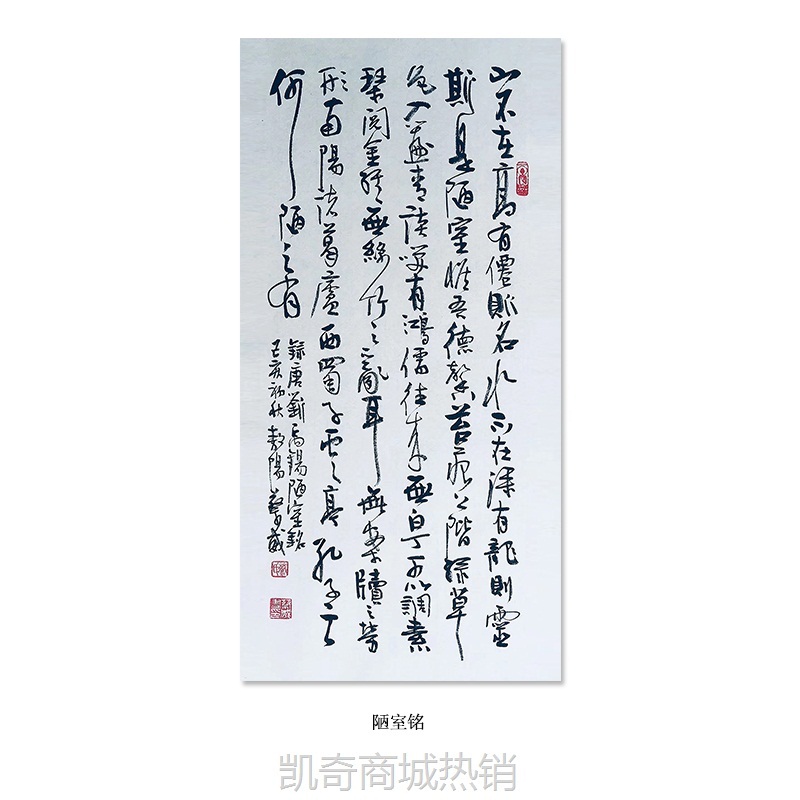 山不在高有僊則名水不在深有龍則靈
斯是陋室惟吾德馨苔痕上階綠草
色入簾青談笑有鴻儒往來無白丁可以調素
琴閱金經無絲竹之亂耳無案牘之勞
形南陽諸葛廬西蜀子雲亭孔子云
何陋之有
錄唐劉禹錫陋室銘
己亥初秋
陋室铭
凯奇商城热销